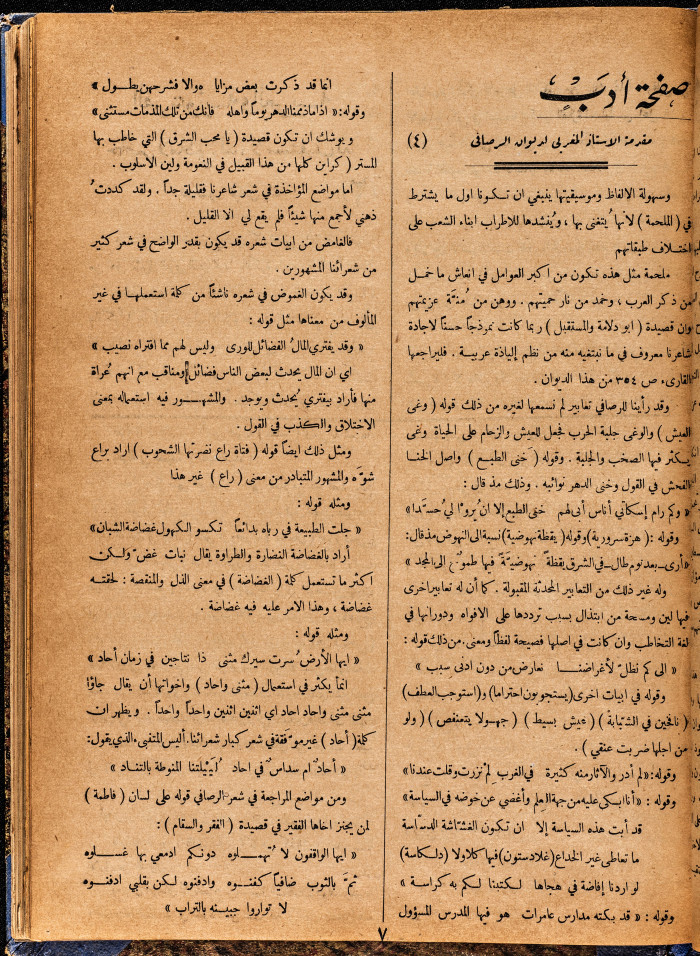 صفحة أدب
مقدمة الاستاذ المغربي لديوان الرصافي (٤)
وسهولة الالفاظ وموسيقيتها ينبغي ان تكونا اول ما يشترط
في ( الملحمة ) لأنها يُتغنى بها ، ويُنشدها للاطراب ابناء الشعب على
اختلاف طبقاتهم
ملحمة مثل هذه تكون من اكبر العوامل في انعاش ما خمل
من ذكر العرب ، وخمد من نار حميتهم . ووهن من مُنّة عزيمتهم
وان قصيدة ( ابو دلامة والمستقبل ) ربما كانت نموذجاً حسناً لاجادة
شاعرنا معروف في ما نبتغيه منه من نظم إلياذة عربية . فليراجعها
القارىء ص ٣٥٤ من هذا الديوان .
وقد رأينا للرصافي تعابير لم نسمعها لغيره من ذلك قوله ( وغى
العيش ) والوغى جلبة الحرب فجعل للعيش والزحام على الحياة وغى
يكثر فيها الصخب والجلبة . وقوله ( خنى الطبع ) واصل الخنا
الفحش في القول وخنى الدهر نوائبه . وذلك مذ قال :
« وكم رام إسكاتي أناس أبى لهم خنى الطبع إلا ان يُروا لي حُسّدا »
وقوله : ( هزة سرورية ) وقوله ( يقظة نهوضية ) نسبة الى النهوض مذ قال :
« أرى ـ بعد نوم طال ـ في الشرق يقظةً نهوضيةً فيها طموح الى المجد »
وله غير ذلك من التعابير المحدثة المقبولة . كما أن له تعابير اخرى
فيها لين ومسحة من ابتذال بسبب ترددها على الافواه ودورانها في
لغة التخاطب وان كانت في اصلها فصيحة لفظاً ومعنى . من ذلك قوله :
« الى كم نظلّ لأغراضنا نعارض من دون ادنى سبب »
وقوله في ابيات اخرى ( يستجوبون احتراما ) و ( استوجب العطف )
( نافخين في الشبّابة ) ( عيش بسيط ) ( جهولا يتعنفص ) ( ولو
من اجلها ضربت عنقي ) .
وقوله : « لم أدر والآثار منه كثيرة في الغرب لِمْ نزرت وقلت عندنا »
وقوله : « أنا ابكي عليه من جهة العلم وأغضي عن خوضه في السياسة »
قد أبت هذه السياسة إلا ان تكون الغشّاشة الدسّاسة
ما تعاطى غير الخداع ( غلادستون ) فيها كلا ولا ( دلكاسة )
لو اردنا إفاضة في هجاها لكتبنا لكم به كراسة »
وقوله : « قد بكته مدارس عامرات هو فيها المدرس المسؤول
انما قد ذكرت بعض مزايا ه والا فشرحهن يطول »
وقوله : « اذا ما ذممنا الدهر يوماً واهله فانك من تلك المذمات مستثنى »
ويوشك ان تكون قصيدة ( يا محب الشرق ) التي خاطب بها
المستر ( كراين كلها من هذا القبيل في النعومة ولين الأسلوب .
اما مواضع المؤاخذة في شعر شاعرنا فقليلة جداً . ولقد كددتُ
ذهني لأجمع منها شيئاً فلم يقع لي الا القليل .
فالغامض من ابيات شعره قد يكون بقدر الواضح في شعر كثير
من شعرائنا المشهورين .
وقد يكون الغموض في شعره ناشئاً من كلمة استعملها في غير
المألوف من معناها مثل قوله :
« وقد يفتري المالُ الفضائل للورى وليس لهم مما افتراه نصيب »
اي ان المال يحدث لبعض الناس فضائل ومناقب مع انهم عُراة
منها فأراد بيفتري يُحدث ويوجد . والمشهور فيه استعماله بمعنى
الاختلاق والكذب في القول .
ومثل ذلك ايضاً قوله ( فتاة راع نضرتها الشحوب ) اراد براع
شوّه والمشهور المتبادر من معنى ( راع ) غير هذا
ومثله قوله :
« جلت الطبيعة في رباه بدائعاً تكسو الكهول غضاضة الشبان »
أراد بالغضاضة النضارة والطراوة يقال نبات غضّ ولكن
اكثر ما تستعمل كلمة ( الغضاضة ) في معنى الذل والمنقصة : لحقته
غضاضة ، وهذا الامر عليه فيه غضاضة .
ومثله قوله :
« ايها الأرض سرت سيرك مثنى ذا نتاجين في زمان أحاد »
انما يكثر في استعمال ( مثنى واحاد ) واخواتها أن يقال جاؤا
مثنى مثنى واحاد احاد اي اثنين اثنين واحداً واحداً . ويظهر ان
كلمة ( أحاد ) غير موّفقة في شعر كبار شعرائنا . أليس المتنبيء الذي يقول :
« أحادٌ ام سداسٌ في احاد لُيَيْلتنا المنوطة بالتناد »
ومن مواضع المراجعة في شعر الرصافي قوله على لسان ( فاطمة )
لمن يجنز اخاها الفقير في قصيدة ( الفقر والسقام ) :
« ايها الواقفون لا تُهملوه دونكم ادمعي بها غسلوه
ثمّ بالثوب ضافياً كفنوه وادفنوه لكن بقلبي ادفنوه
لا تواروا جبينه بالتراب »
٧